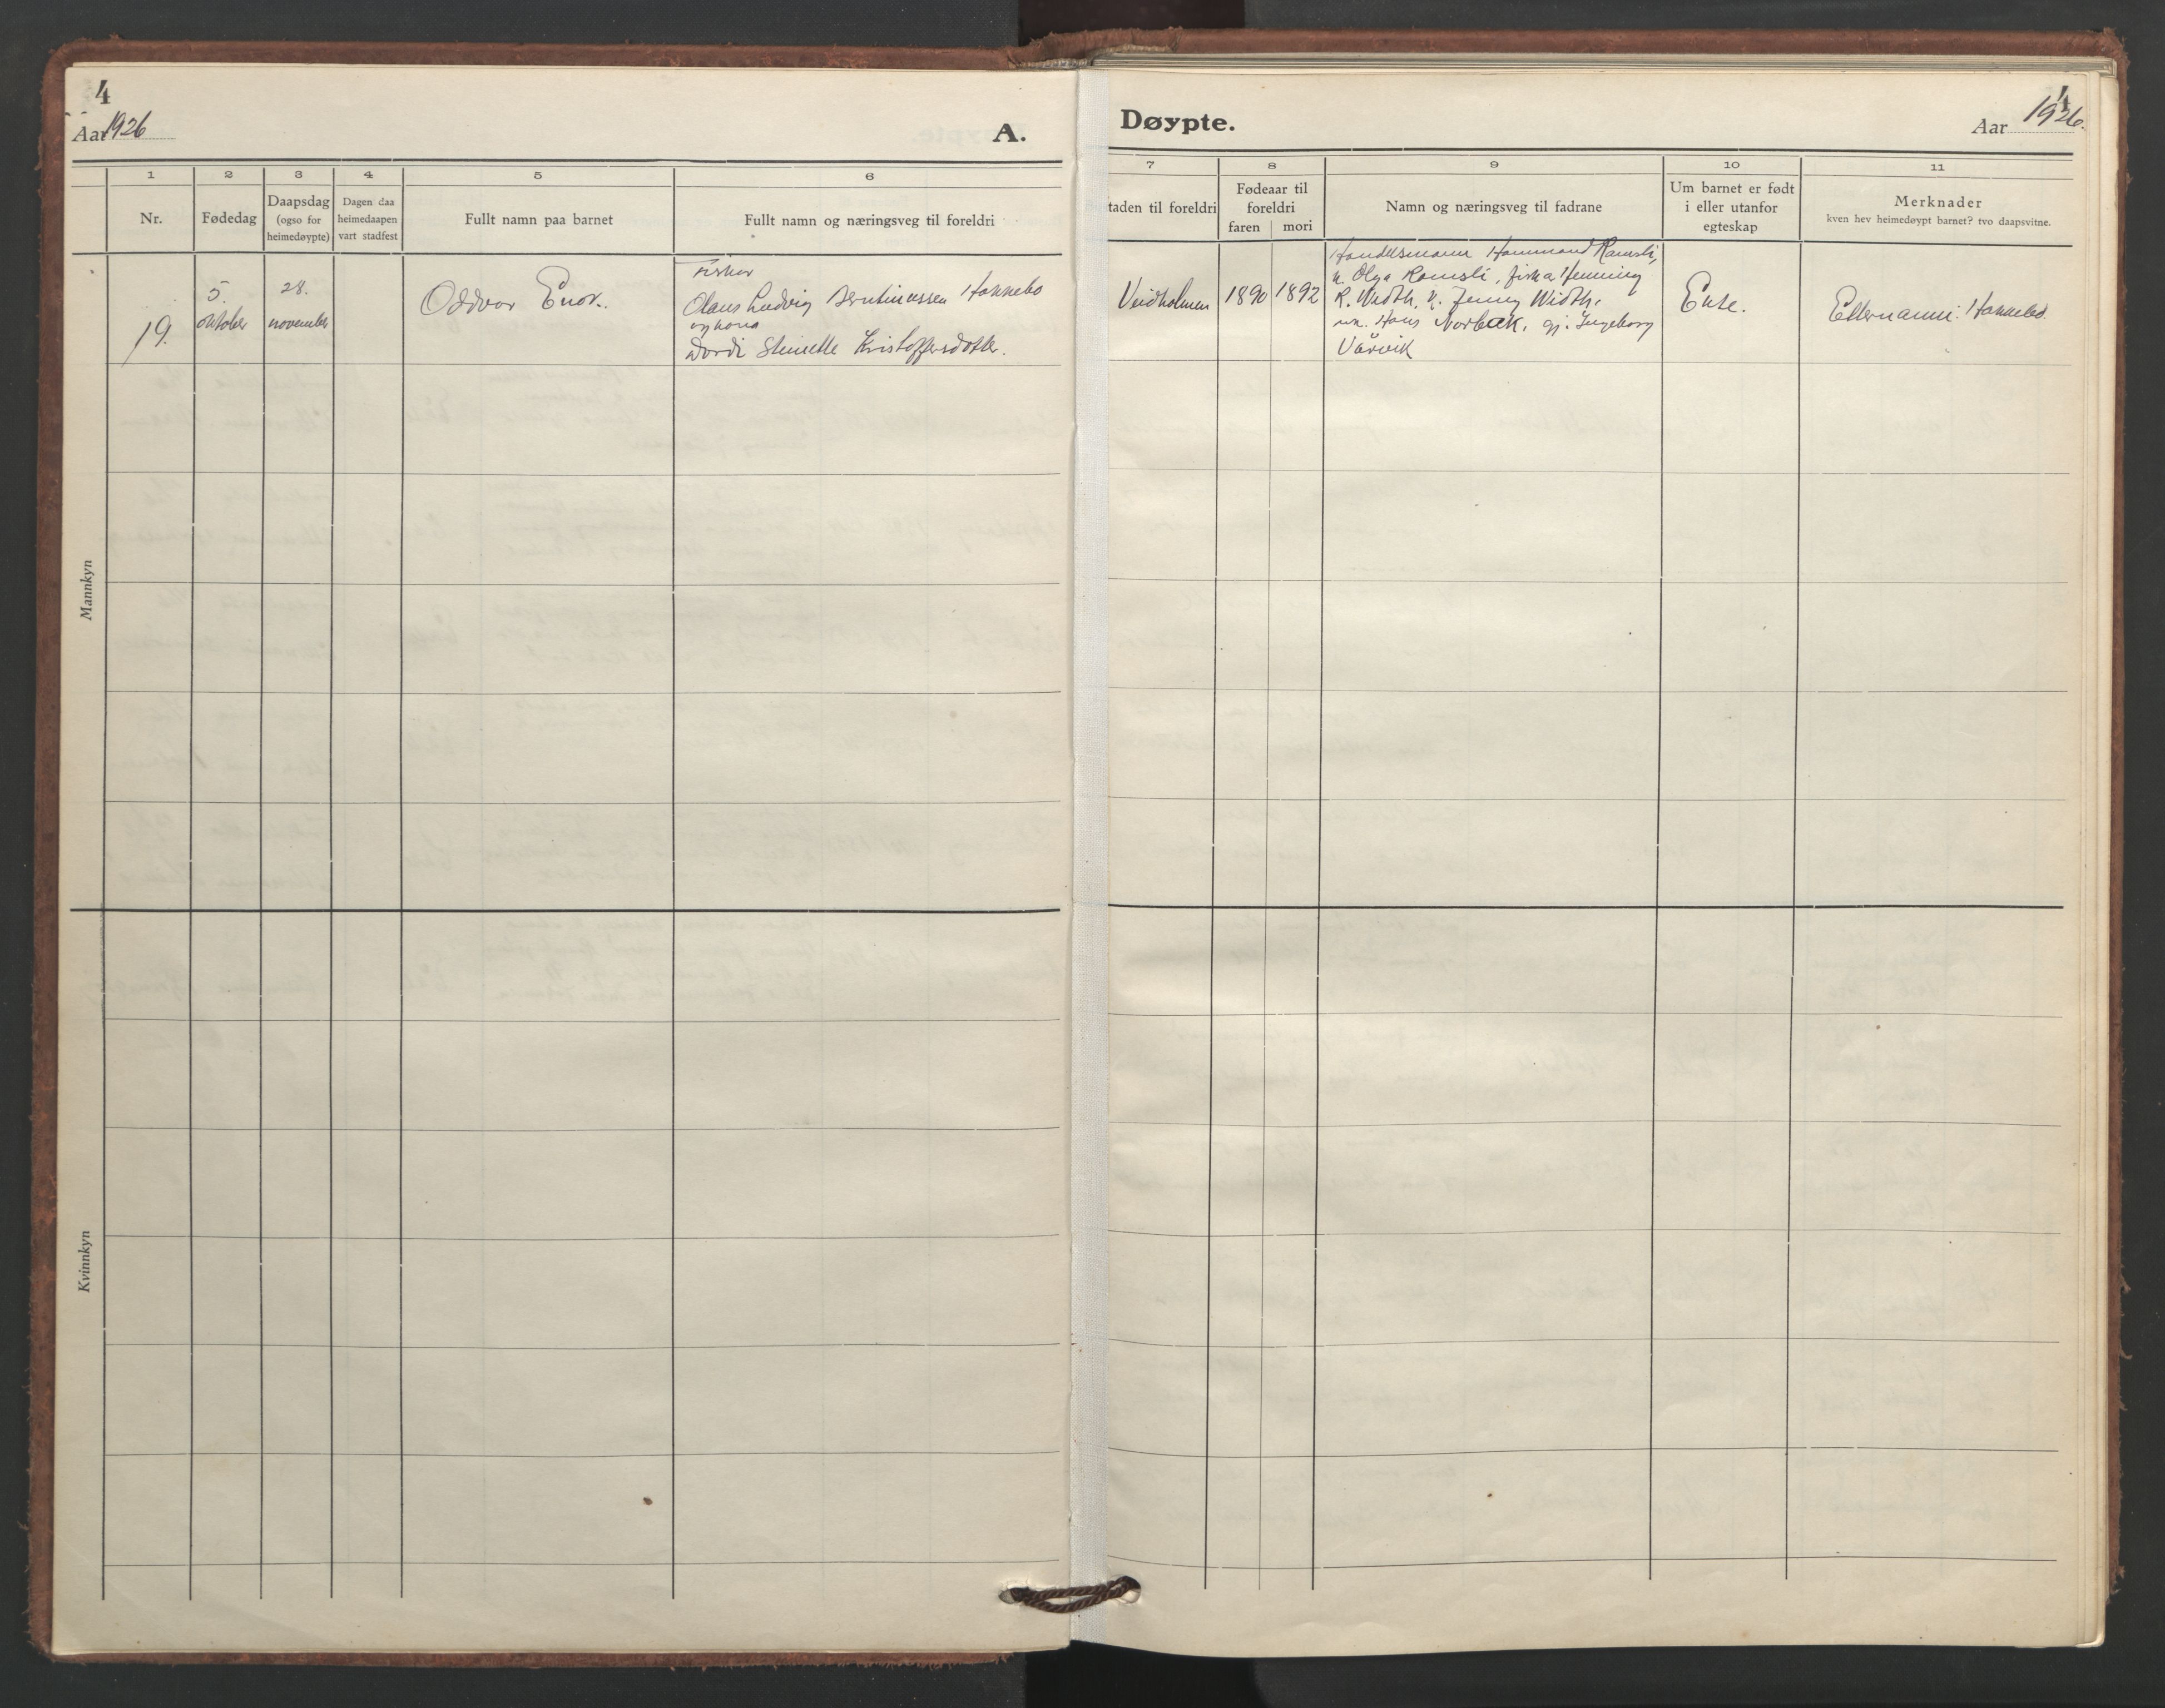 4
Aar 1926
A.
1
2
3
4
5
6
Nr.
Fødedag
Daapsdag
(ogso for
heimedøypte)
Dagen daa
heimedaapen
vart stadfest
Fullt namn paa barnet
Fullt namn og næringsveg til foreldri
Mannkyn
19.
5.
oktober
28.
november
Oddvar Enok.
Fiskar
Olaus Ludvig Berntinussen Hannebo
og kona
Dordi Steinette Kristoffersdotter.
Kvinnkyn
4
Døypte.
Aar 1926.
7
8
9
10
11
taden til foreldri
Fødeaar til
foreldri
faren
mori
Namn og næringsveg til fadrane
Um barnet er født
i eller utanfor
egteskap
Merknader
kven hev heimedøypt barnet? tvo daapsvitne.
Veidholmen
1890
1892
Handelsmann Hammond Ramsli,
k. Olga Ramsli, fiskar Henning
R. Width, k. Jenny Width,
un. Hans Norbeck, gj. Ingeborg
Vårvik
Ekte.
Etternamn: Hannebo.